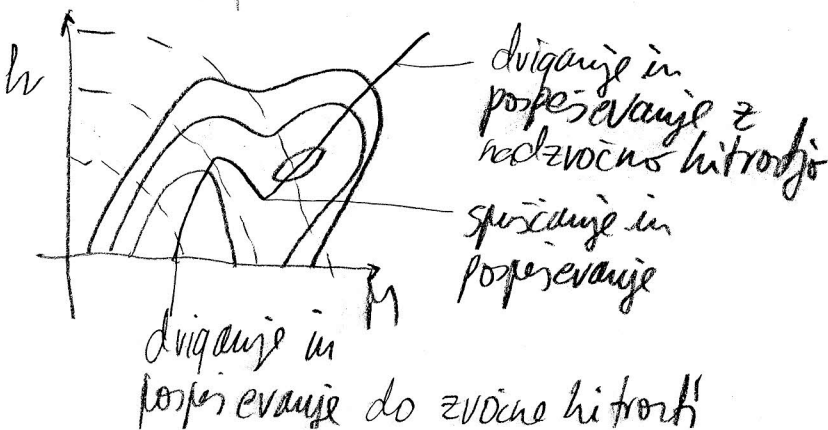 h
dviganje in
pospeševanje z
nadzvočno hitrostjo
spuščanje in
pospeševanje
M
dviganje in
pospeševanje do zvočne hitrosti